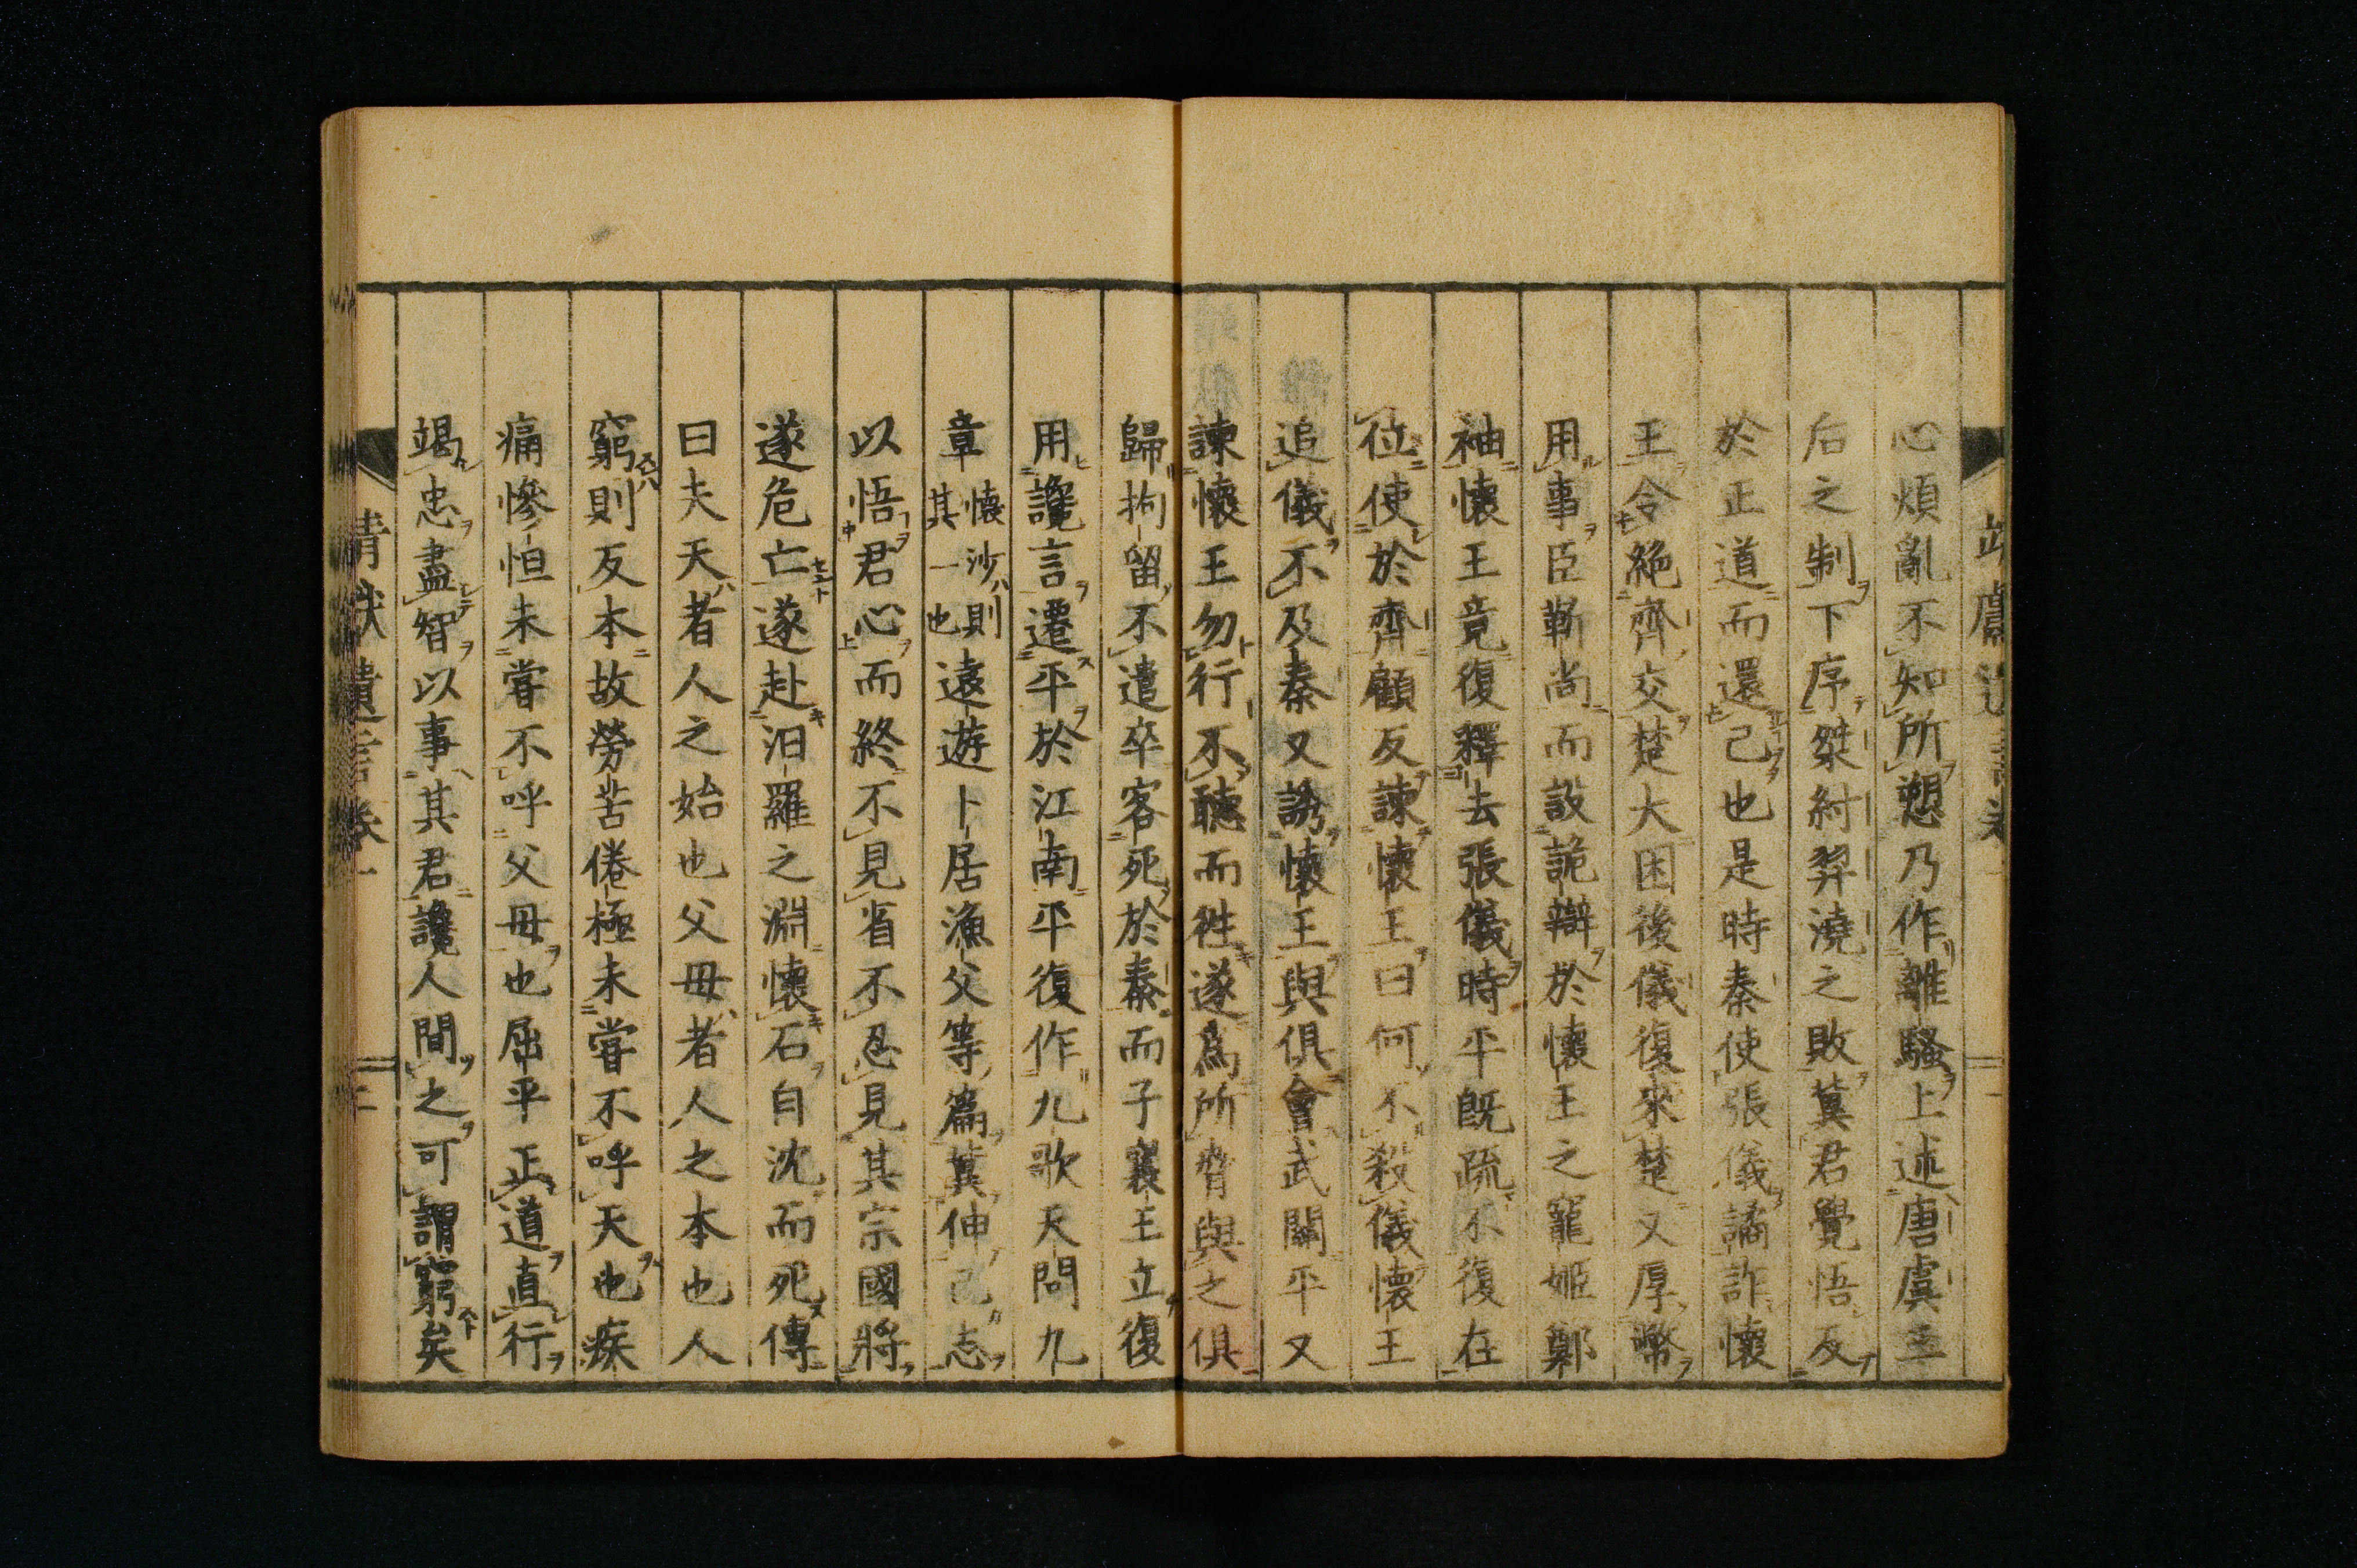 心煩亂不知所愬乃作離騷上述唐虞三
后之制下序桀紂羿澆之敗冀君覺悟反
於正道而還己也是時秦使張儀譎詐懷
王令絶齊交楚大困後儀復來楚又厚幣
用事臣靳尚而設詭辯於懷王之寵姬鄭
袖懷王竟復釋去張儀時平既疏不復在
位使於齊顧反諫懷王曰何不殺儀懷王
追儀不及秦又誘懷王與俱會武關平又
諫懷王勿行不聽而徃遂爲所脅與之俱
歸拘留不遣卒客死於秦而子襄王立復
用讒言遷平於江南平復作九歌天問九
章懷沙則其一也遠遊卜居漁父等篇冀伸己志
以悟君心而終不見省不忍見其宗國將
遂危亡遂赴汨羅之淵懷石自沈而死傳
曰夫天者人之始也父母者人之本也人
窮則反本故勞苦倦極未嘗不呼天也疾
痛慘怛未嘗不呼父母也屈平正道直行
竭忠盡智以事其君讒人間之可謂窮矣
靖獻遺言卷一